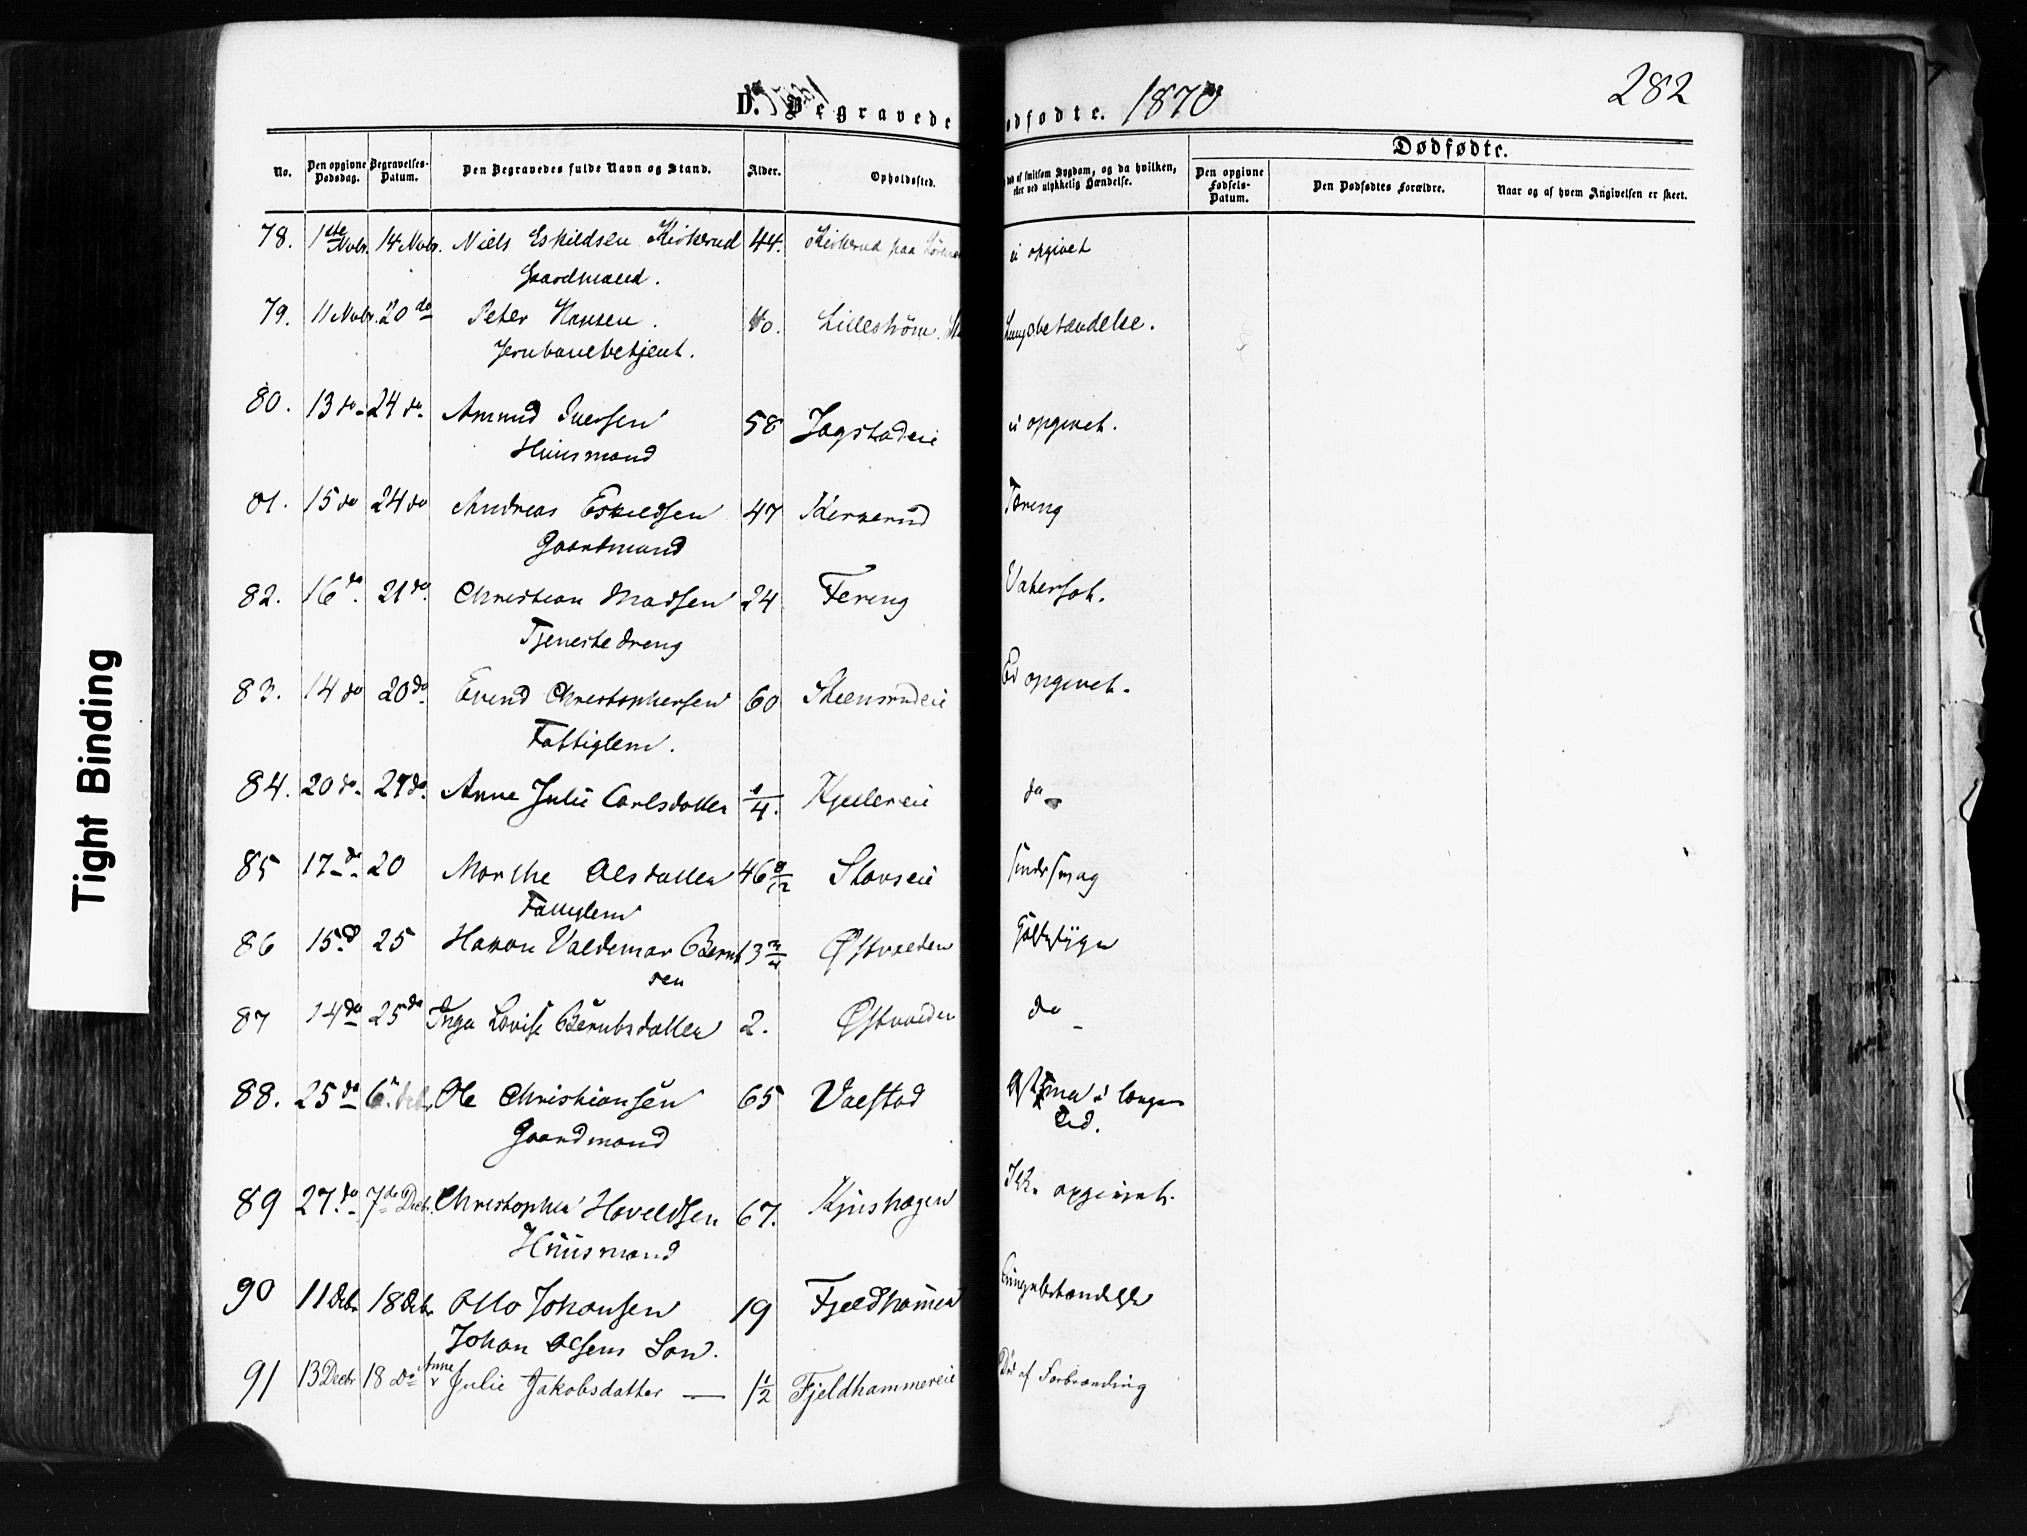 Tight Binding
D. Begravede
odfødte. 1870
282
No.
Den opgivne Dødsdag.
Begravelses-Datum.
Den Begravedes fulde Navn og Stand.
Alder.
Opholdssted.
af smitsom Sygdom, og da hvilken,
eller ved ulykkelig Hændelse.
Dødfødte.
Den opgivne Fødsels-Datum.
Den Dødfødtes Forældre.
Naar og af hvem Angivelsen er skeet.
78. 1ste Novbr. 14 Novbr. Niels Eskildsen Kirkerud 44. Kirkerud paa ei opgivet
Gaardmand.
79. 11 Novbr. 20 do Peter Hansen. 40. Lilleström. Lungebetændelse.
Jernbanebetjent.
80. 13 do 24 do Amund Iversen 58 Jogstadeie ei opgivet.
Huusmand
81. 15 do 24 do Andreas Eskildsen 47 Kirkerud Tæring
Gaardmand
82. 16 do. 21 do. Christian Madsen 24 Fering Vatersot.
Tjenestedreng
83. 14 do 20 do. Evend Christophersen 60 Skeensrudeie Ei opgivet.
Fattiglem.
84. 20 do. 27 do. Anne Julie Carlsdatter 1/4. Kjellereie do
85 17 do 20 Marthe Olsdatter 46 8/12 Stavseie
Fattiglem
86 15 d 25 Hakon Valdemar Bernt 13 Østvolden
sen
87 14 do 25 do Inga Lovise Berntsdatter 2. Østvolden do
88. 25 do 6 debr. Ole Christiansen 65 Valstad Astma i længere
Tid.
Gaardmand
89 27 do 7de Decbr. Christopher Hovelsen 67. Kjushagen Ikke opgivet.
Huusmand
90 11 Debr 18 Debr Otto Johansen 19 Fjeldhamer Lungebetændelse
Johan Olsens Søn.
91 13 Decbr 18 Do Anne Julie Jakobsdatter — 1 1/2 Fjeldhammereie Død af Forbrænding